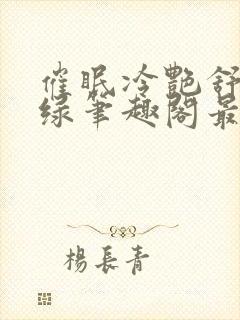 催眠冷艷舒
绿筆趣閣最
楊長青